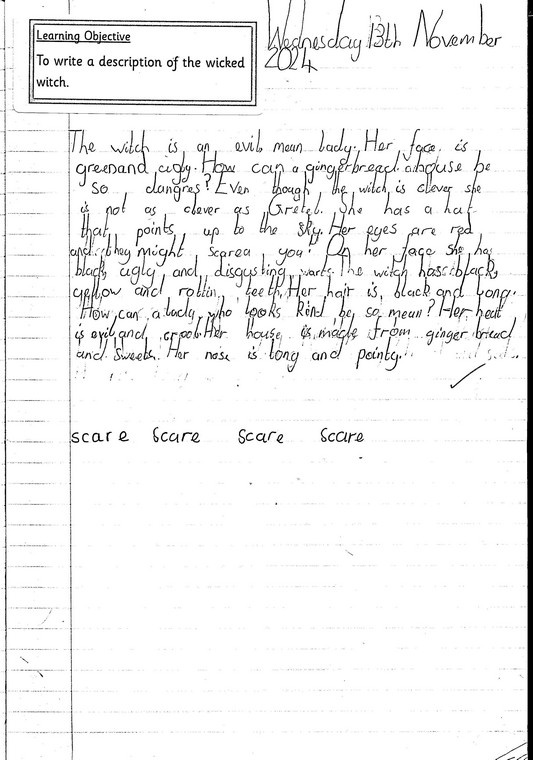 Learning Objective
To write a description of the wicked
witch.
Wednesday 13th November
2024
The witch is an evil mean lady. Her face is
greenand ugly. How can a gingerbread house be
so dangres? Even though the witch is clever she
is not as clever as Gretel. She has a hat
that points up to the sky. Her eyes are red
and they might scarea you! On her face she has
black, ugly and disgusting warts. The witch has black,
yellow and rottin teeth. Her hair is black and long.
How can a lady who looks kind be so mean? Her heat
is evil and crool. Her house is made from ginger bread
and sweets. Her nose is long and pointy.
scare scare scare scare